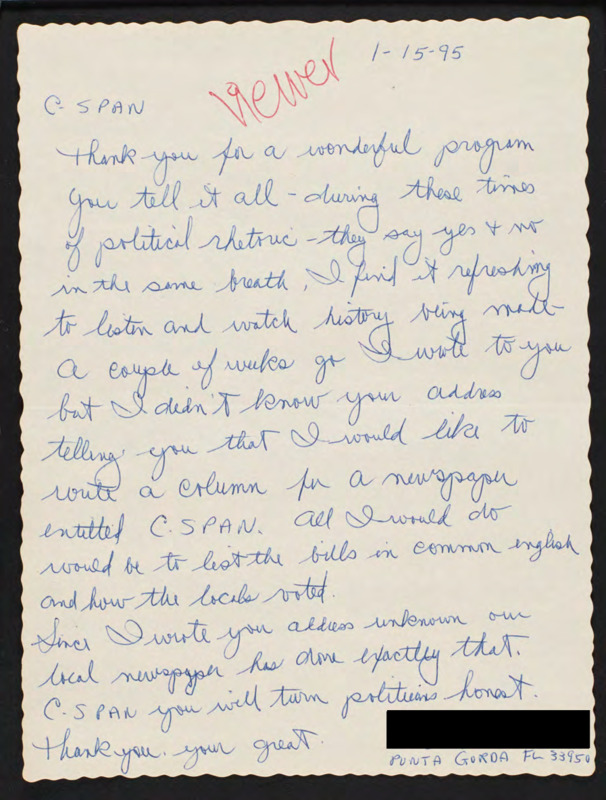 1-15-95
Viewer
C-SPAN
Thank you for a wonderful program
You tell it all - during these times
of political rhetoric - they say yes & no
in the same breath, I find it refreshing
to listen and watch history being made -
A couple of weeks go I wrote to you
but I didn't know your address
telling you that I would like to
write a column for a newspaper
entitled C.SPAN. All I would do
would be to list the bills in common english
and how the locals voted.
Since I wrote you address unknown our
local newspaper has done exactley that.
C-SPAN you will turn politicians honest.
Thank you. your great.
PUNTA GORDA FL 33950